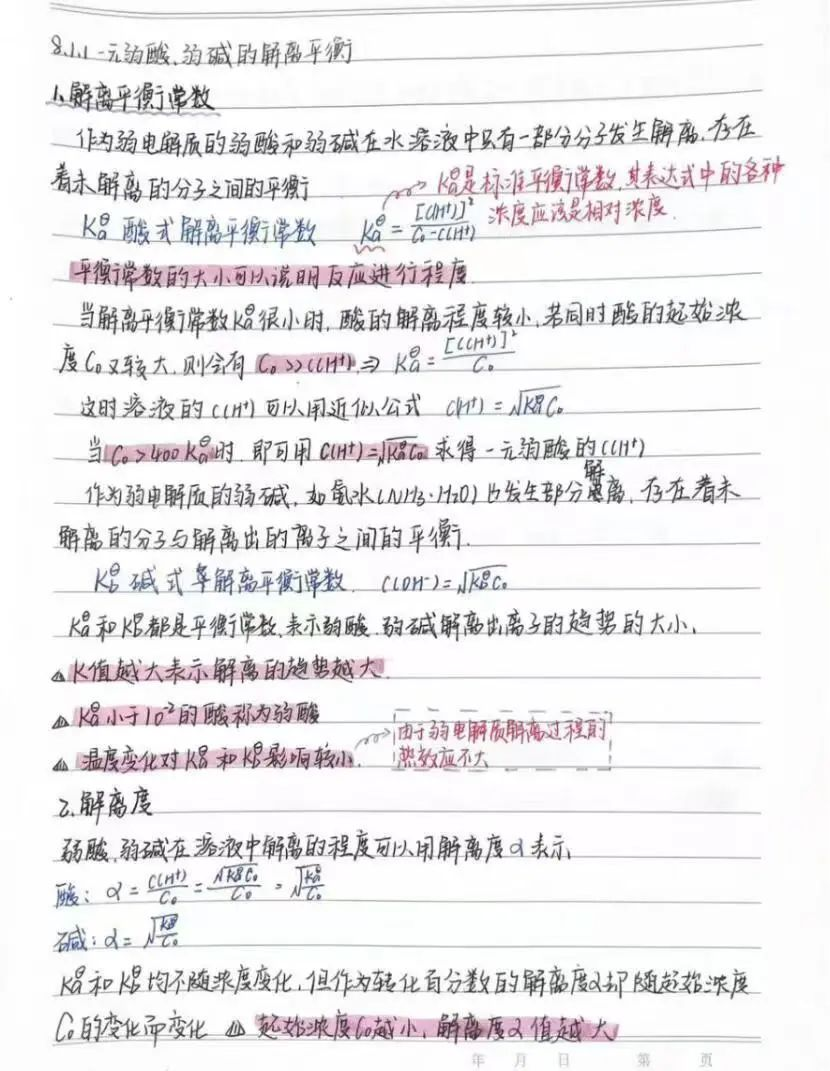 8.1.1 一元弱酸、弱碱的解离平衡
1、解离平衡常数
作为弱电解质的弱酸和弱碱在水溶液中只有一部分分子发生解离,存在
着未解离的分子之间的平衡
Ka⊖是标准平衡常数,其表达式中的各种
浓度应该是相对浓度.
Ka⊖ 酸式解离平衡常数 Ka⊖ = [c(H⁺)]²/(C₀-c(H⁺))
平衡常数的大小可以说明反应进行程度
当解离平衡常数Ka⊖很小时,酸的解离程度较小,若同时酸的起始浓
度C₀又较大,则会有 C₀>>c(H⁺) ⇒ Ka⊖ = [c(H⁺)]²/C₀
这时溶液的c(H⁺)可以用近似公式 c(H⁺) = √Ka⊖C₀
当C₀>400Ka⊖时,即可用C(H⁺)=√Ka⊖C₀ 求得一元弱酸的c(H⁺)
作为弱电解质的弱碱,如氨水(NH₃·H₂O)也发生部分解离,存在着未
解离的分子与解离出的离子之间的平衡.
Kb⊖ 碱式解离平衡常数. c(OH⁻)=√Kb⊖C₀
Ka⊖和Kb⊖都是平衡常数,表示弱酸、弱碱解离出离子的趋势的大小,
K值越大表示解离的趋势越大
Ka⊖小于10⁻²的酸称为弱酸
温度变化对Ka⊖和Kb⊖影响较小
由于弱电解质解离过程的
热效应不大
2、解离度
弱酸、弱碱在溶液中解离的程度可以用解离度α表示
酸: α = c(H⁺)/C₀ = √Ka⊖C₀/C₀ = √Ka⊖/C₀
碱: α = √Kb⊖/C₀
Ka⊖和Kb⊖均不随浓度变化,但作为转化百分数的解离度α却随起始浓度
C₀的变化而变化 起始浓度C₀越小,解离度α值越大
年 月 日 第 页